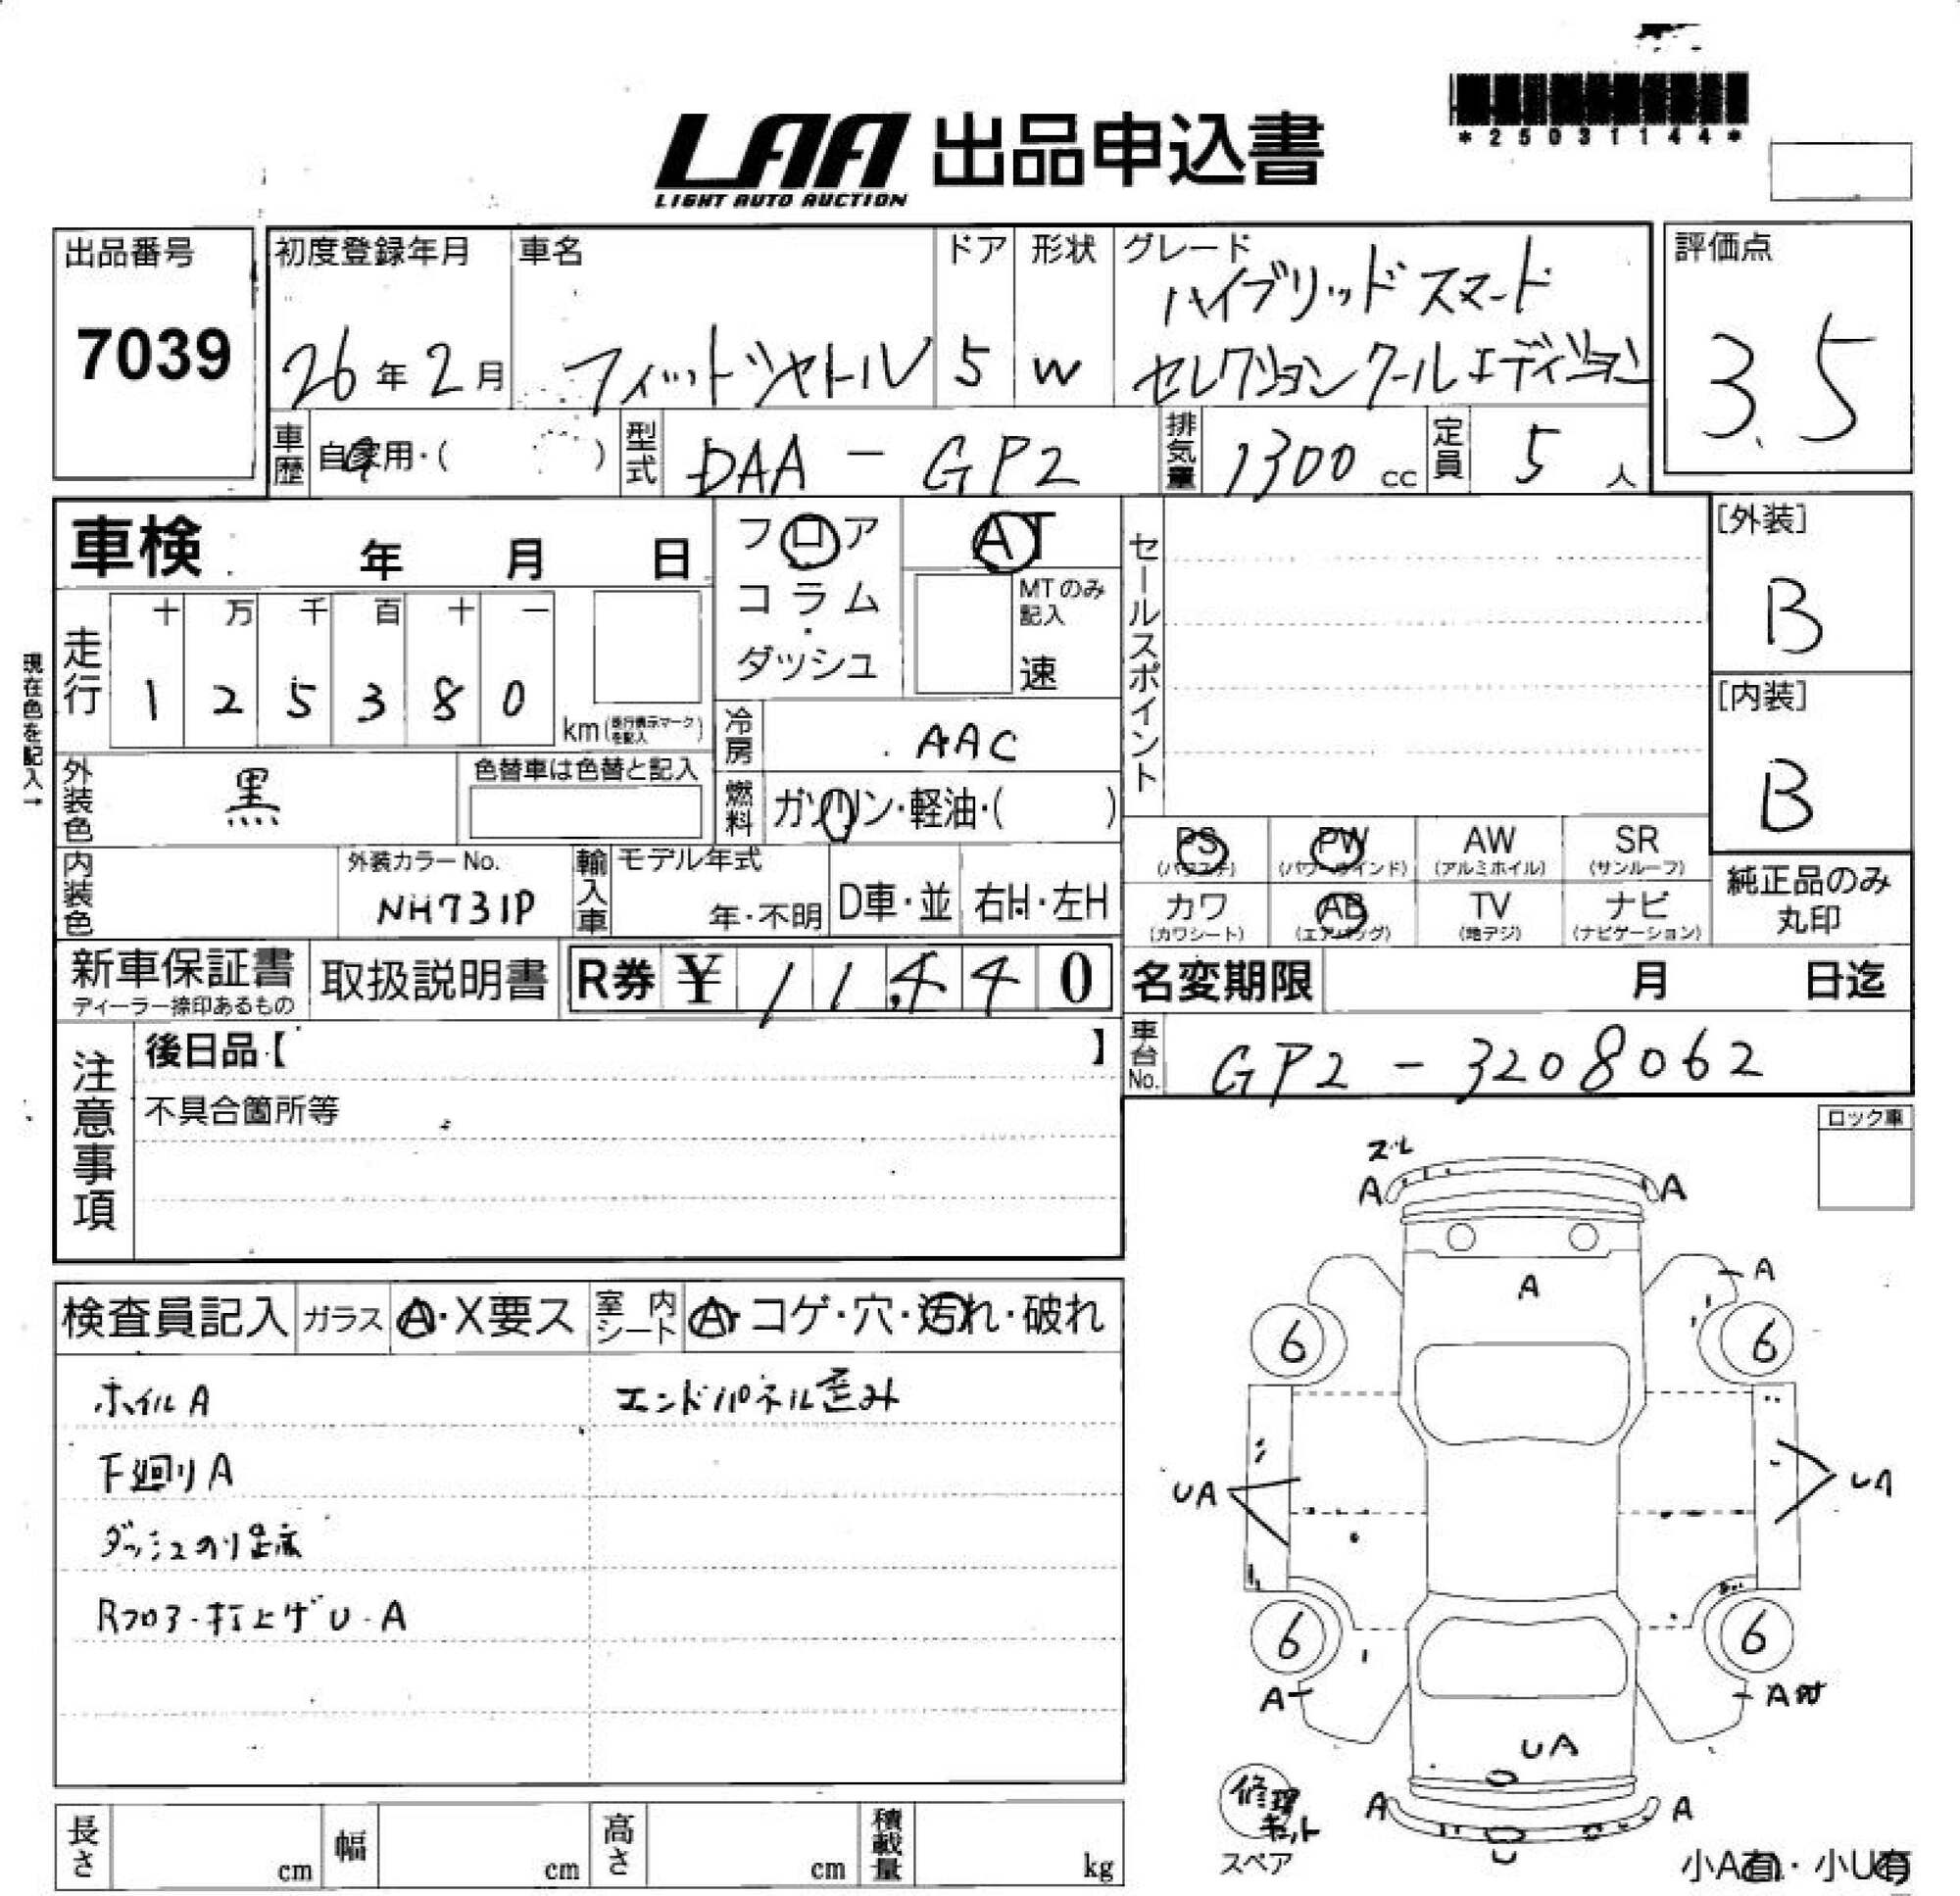 *25031144*
LAA 出品申込書
LIGHT AUTO AUCTION
出品番号
7039
初度登録年月
26年2月
車名
フィットシャトル
ドア
5
形状
W
グレード
ハイブリッドスマート
セレクションクールエディション
評価点
3.5
車歴 自家用・( )
型式 DAA-GP2
排気量 1300cc
定員 5人
車検 年 月 日
フロア
コラム
・
ダッシュ
AT
MTのみ
記入
速
セールスポイント
[外装]
B
[内装]
B
現在色を記入→
走行
十 万 千 百 十 一
1 2 5 3 8 0
km(走行表示マークを記入)
冷房 AAC
外装色 黒
色替車は色替と記入
燃料 ガソリン・軽油・( )
PS (パワステ)
PW (パワーウインド)
AW (アルミホイル)
SR (サンルーフ)
カワ (カワシート)
AB (エアバッグ)
TV (地デジ)
ナビ (ナビゲーション)
純正品のみ
丸印
内装色
外装カラーNo.
NH731P
輸入車
モデル年式
年・不明
D車・並
右H・左H
新車保証書
ディーラー捺印あるもの
取扱説明書
R券 ¥ 11,440
名変期限 月 日迄
車台No. GP2-3208062
注意事項
後日品【 】
不具合箇所等
ロック車
検査員記入
ガラス A・X要ス
室内シート A・コゲ・穴・汚れ・破れ
ホイルA
エンドパネル歪み
下廻りA
ダッシュのり跡
Rフロア・打上げU・A
ズレ
A A
A
A
6 6
UA UA
6 6
A A
UA
A A
U
修理
キット
スペア
小A有・小U有
長さ cm
幅 cm
高さ cm
積載量 kg